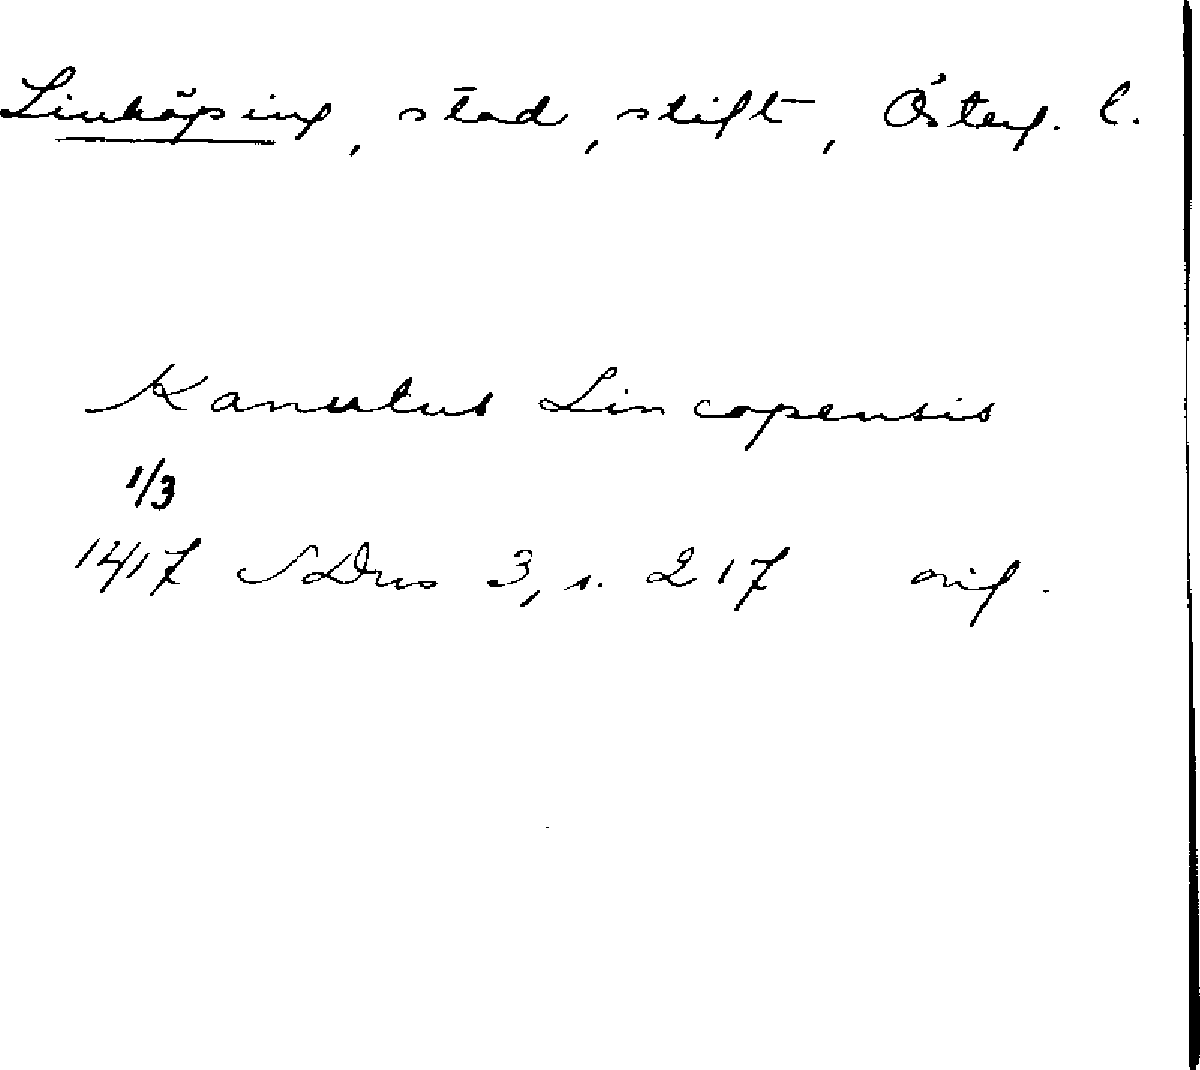 Linköping, stad, stift, Österg. l.
Kanutus Lincopensis
1/3
1417 SDns 3, s. 217 orig.